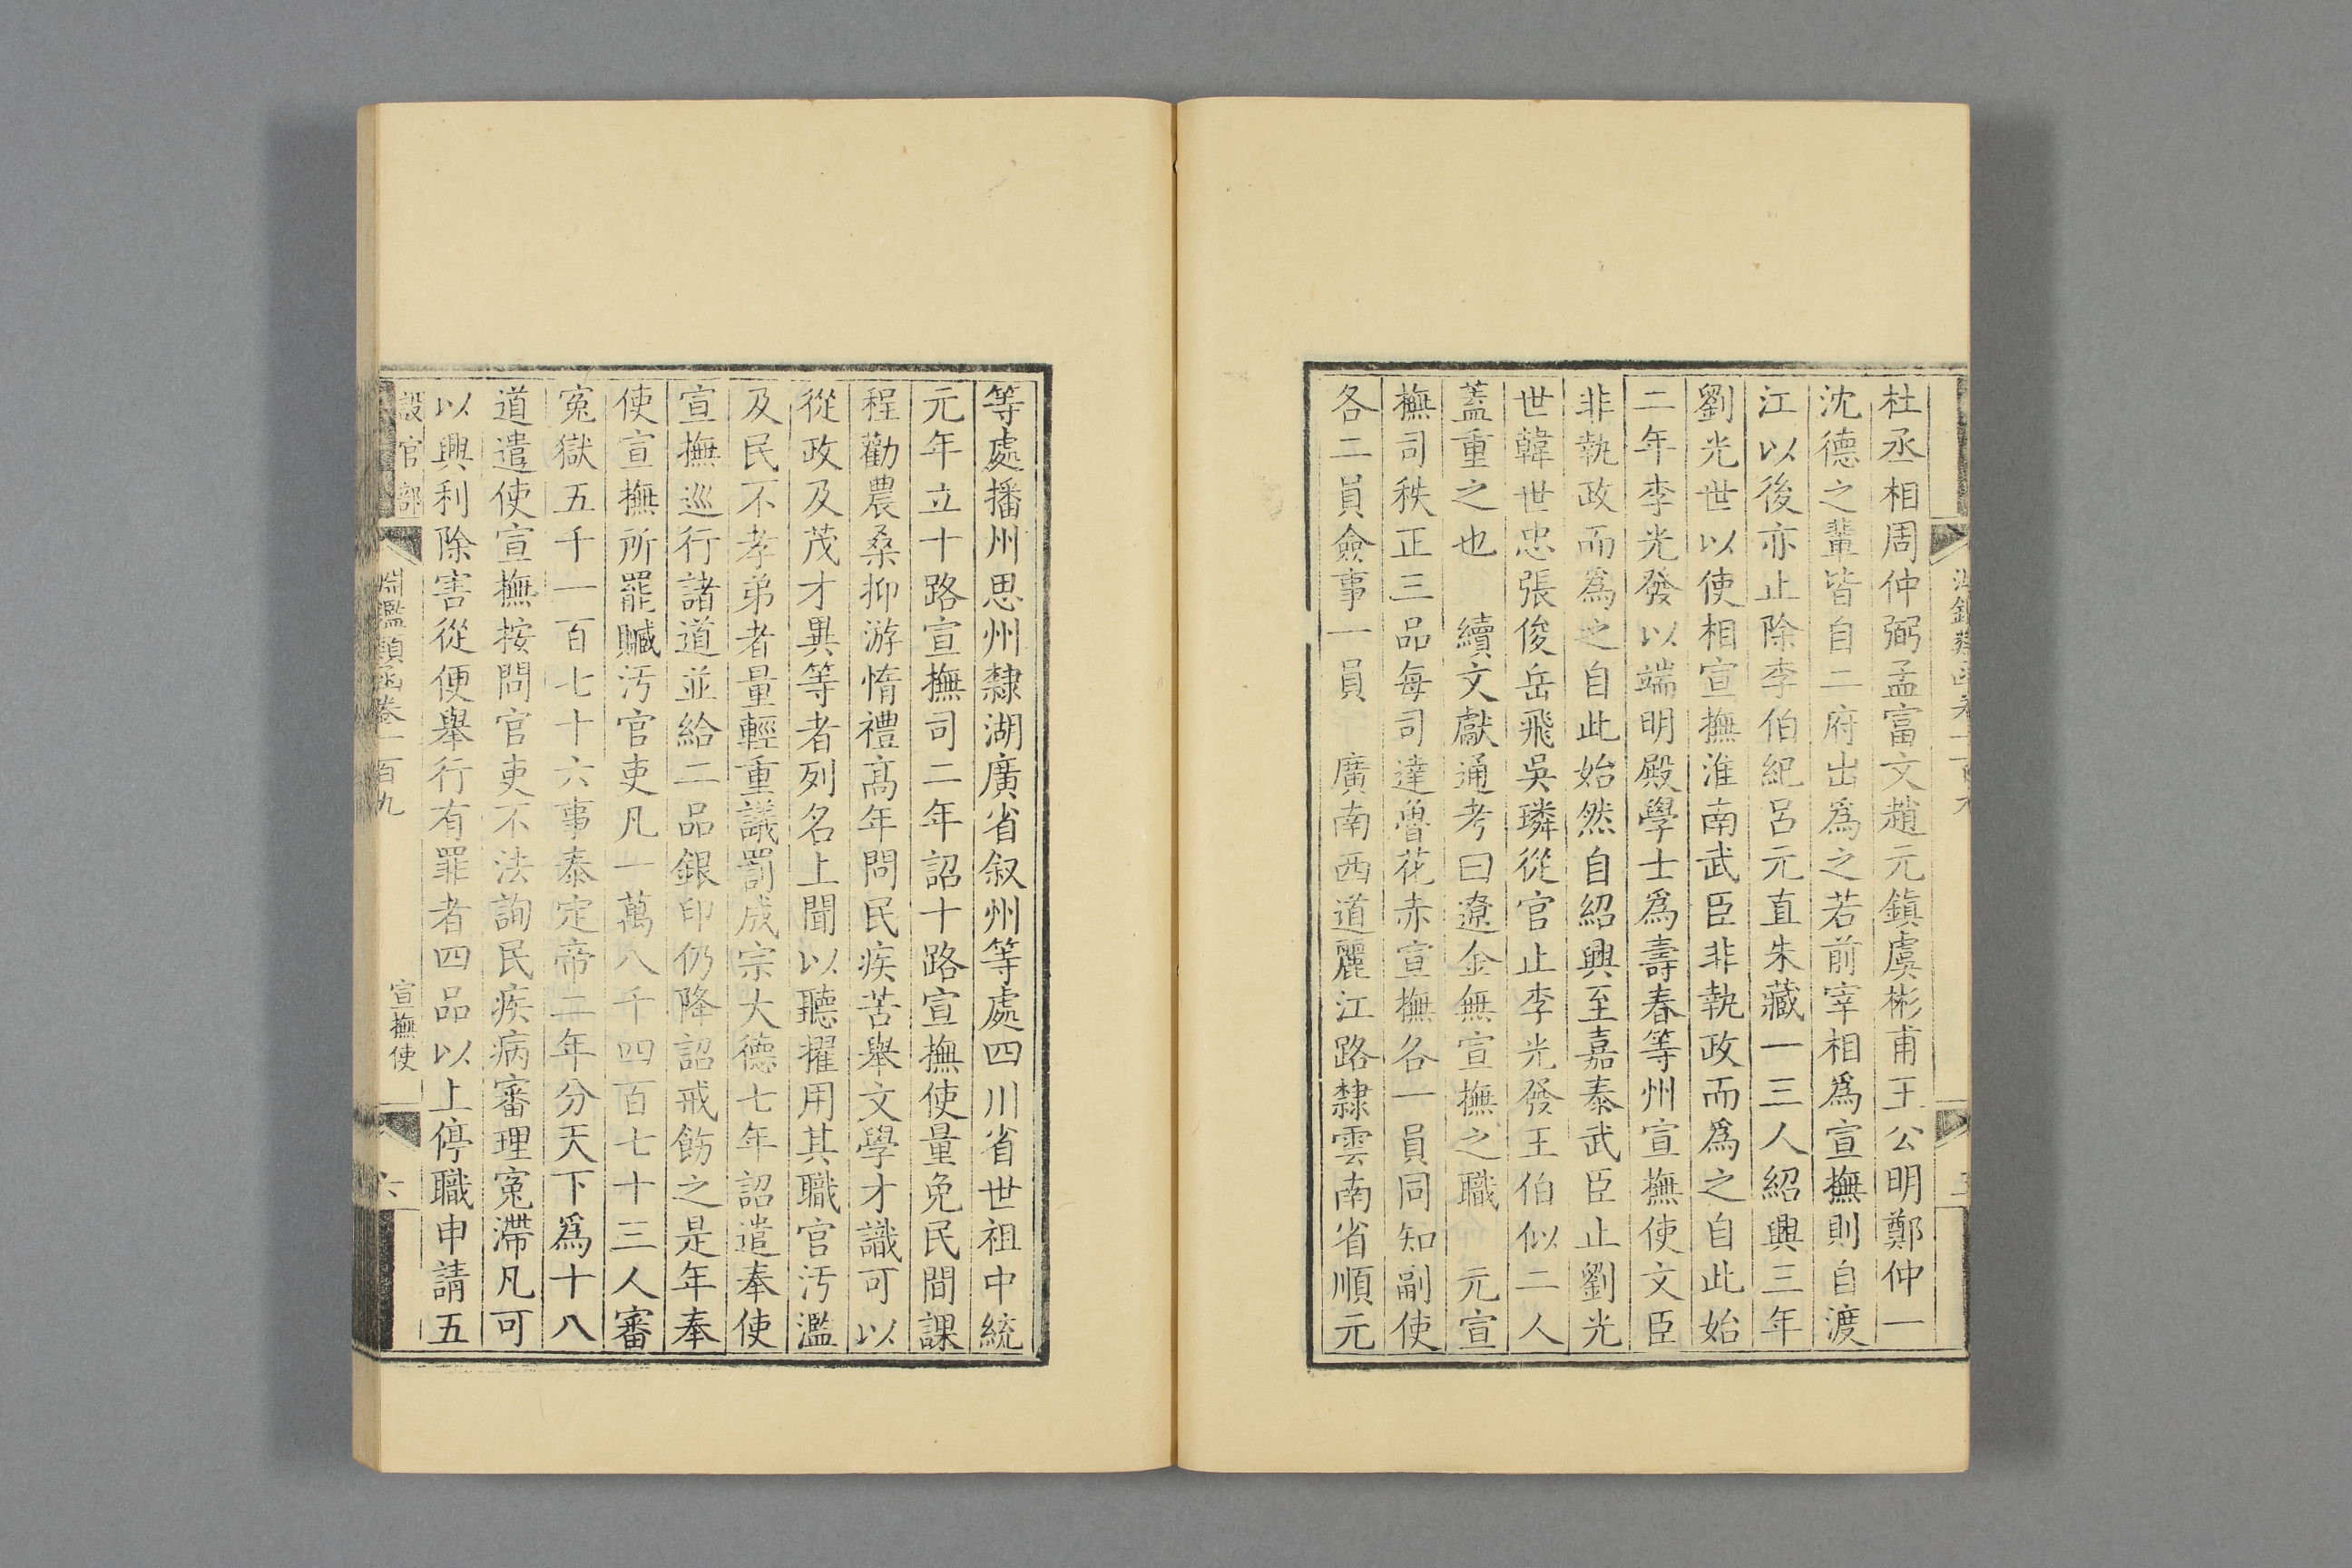 杜丞相周仲弼孟富文趙元鎮虞彬甫王公明鄭仲一
沈德之輩皆自二府出爲之若前宰相爲宣撫則自渡
江以後亦止除李伯紀呂元直朱藏一三人紹興三年
劉光世以使相宣撫淮南武臣非執政而爲之自此始
二年李光發以端明殿學士爲壽春等州宣撫使文臣
非執政而爲之自此始然自紹興至嘉泰武臣止劉光
世韓世忠張俊岳飛吳璘從官止李光發王伯似二人
蓋重之也　續文獻通考曰遼金無宣撫之職　元宣
撫司秩正三品每司達魯花赤宣撫各一員同知副使
各二員僉事一員　廣南西道麗江路隸雲南省順元
等處播州思州隸湖廣省叙州等處四川省世祖中統
元年立十路宣撫司二年詔十路宣撫使量免民間課
程勸農桑抑游惰禮高年問民疾苦舉文學才識可以
從政及茂才異等者列名上聞以聽擢用其職官汚濫
及民不孝弟者量輕重議罰成宗大德七年詔遣奉使
宣撫巡行諸道並給二品銀印仍降詔戒飭之是年奉
使宣撫所罷贓汚官吏凡一萬八千四百七十三人審
寃獄五千一百七十六事泰定帝二年分天下爲十八
道遣使宣撫按問官吏不法詢民疾病審理寃滯凡可
以興利除害從便舉行有罪者四品以上停職申請五
設官部
淵鑑類函卷一百九
宣撫使
六